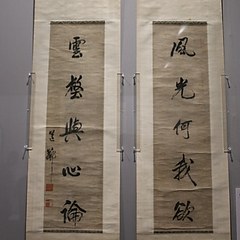 風光何我欲
雲壑與心論